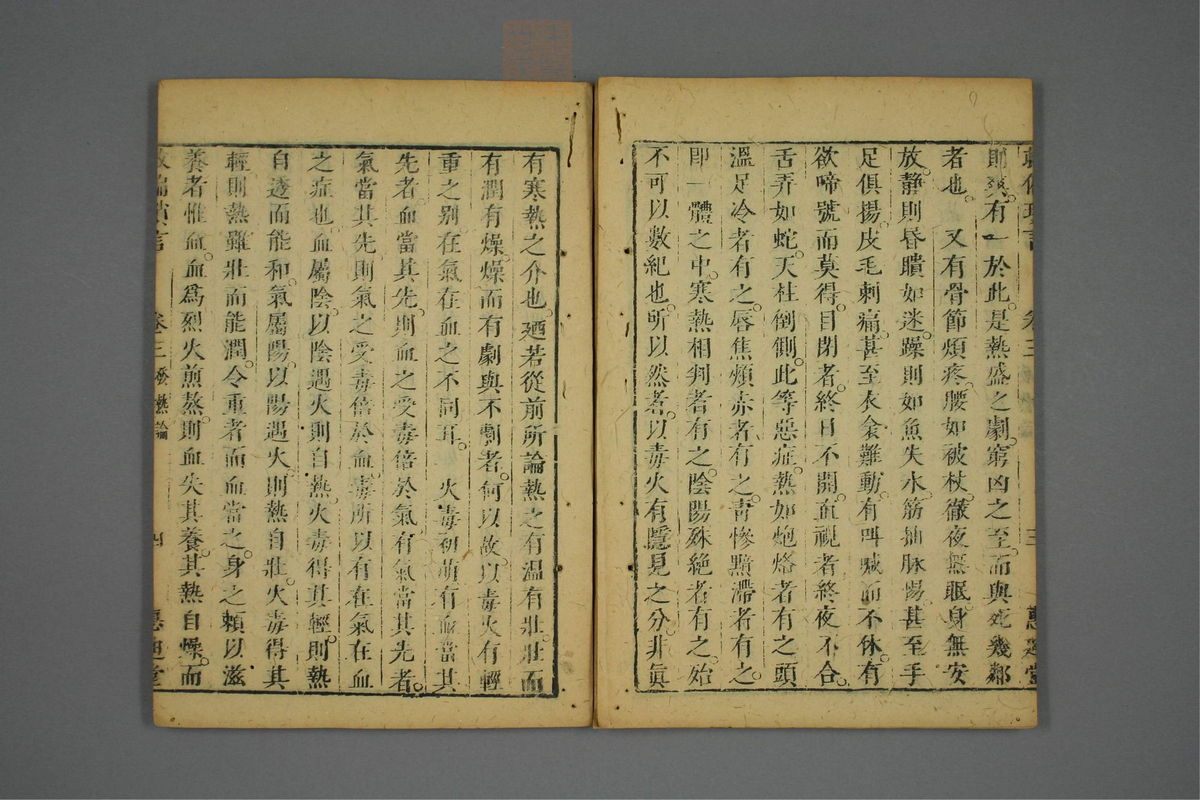 則爽有一於此是熱盛之劇窮凶之至而與死幾鄰
者也又有骨節煩疼腰如被杖徹夜無眠身無安
放靜則昏瞶如迷躁則如魚失水筋抽脉惕甚至手
足俱揚皮毛刺痛甚至衣衾難動有叫喊而不休有
欲啼號而莫得目閉者終日不開直視者終夜不合
舌弄如蛇天柱倒側此等惡症熱如炮烙者有之頭
溫足冷者有之唇焦頰赤者有之青慘黯滯者有之
即一體之中寒熱相判者有之陰陽殊絕者有之殆
不可以數紀也所以然者以毒火有隱見之分非眞
有寒熱之介也廼若從前所論熱之有溫有壯壯而
有潤有燥燥而有劇與不劇者何以故以毒火有輕
重之别在氣在血之不同耳火毒初萌有血當其
先者血當其先則血之受毒倍於氣有氣當其先者
氣當其先則氣之受毒倍於血毒所以有在氣在血
之症也血屬陰以陰遇火則自熱火毒得其輕則熱
自透而能和氣屬陽以陽遇火則熱自壯火毒得其
輕則熱雖壯而能潤令重者而血當之身之賴以滋
養者惟血血爲烈火煎熬則血失其養其熱自燥而
卷三 發熱論 四